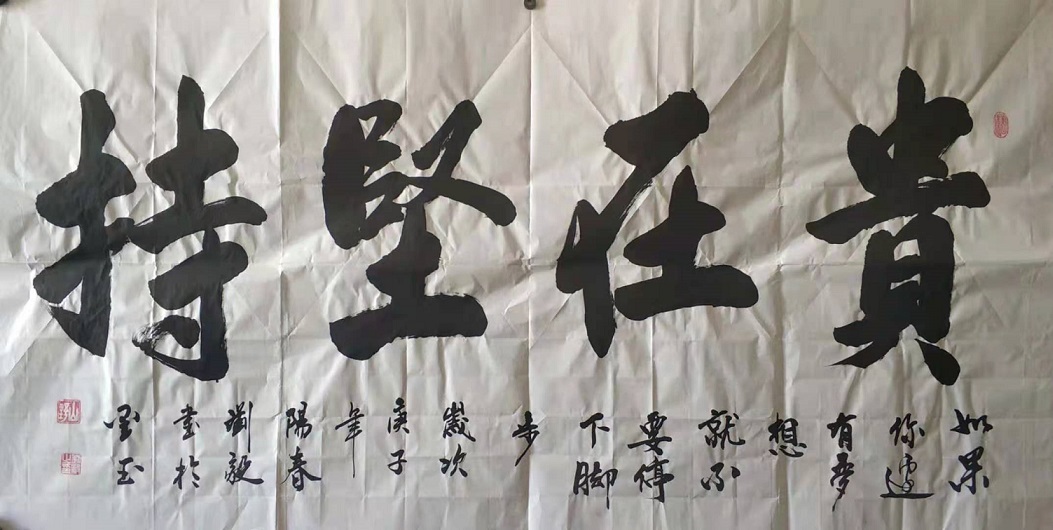 貴在堅持
如果
你還
有夢
想
就不
要停
下脚
步
歲次
庚子
年
陽春
劉毅
書於
玉